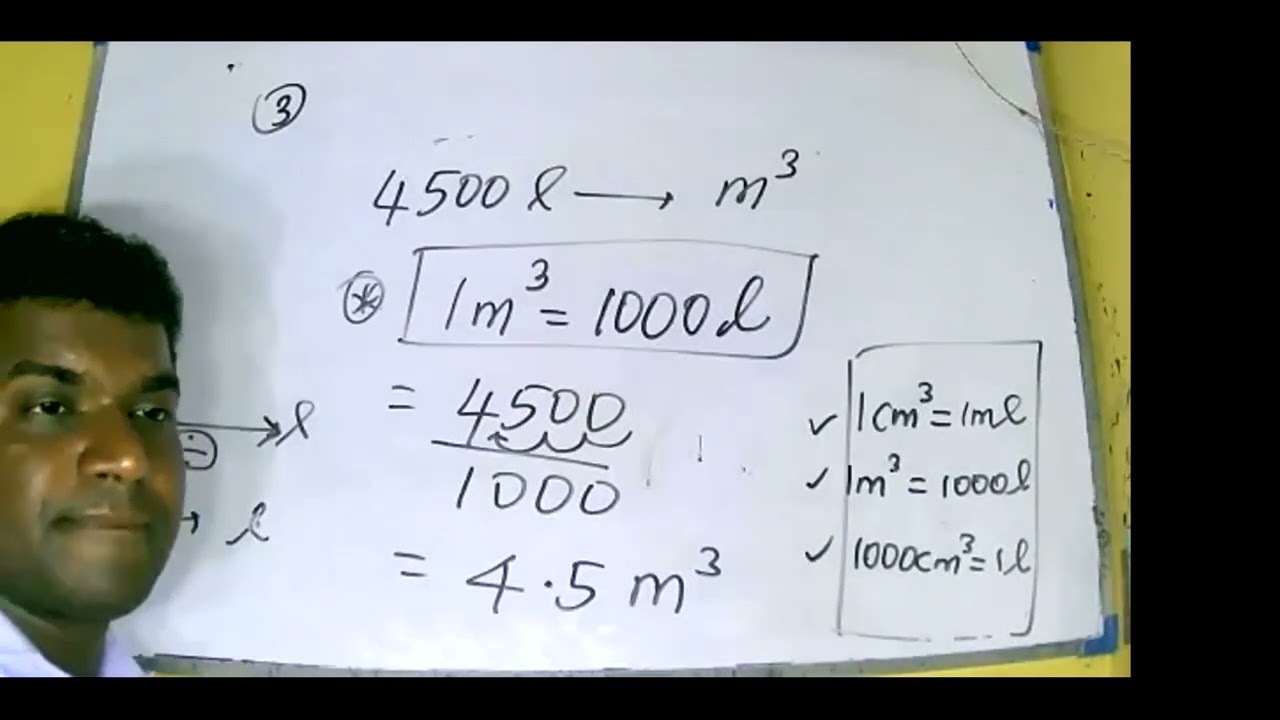 ③
4500 l → m³
⊛ 1m³ = 1000 l
= 4500
1000
= 4.5 m³
→ l
÷
→ l
✓ 1cm³ = 1ml
✓ 1m³ = 1000l
✓ 1000cm³ = 1l